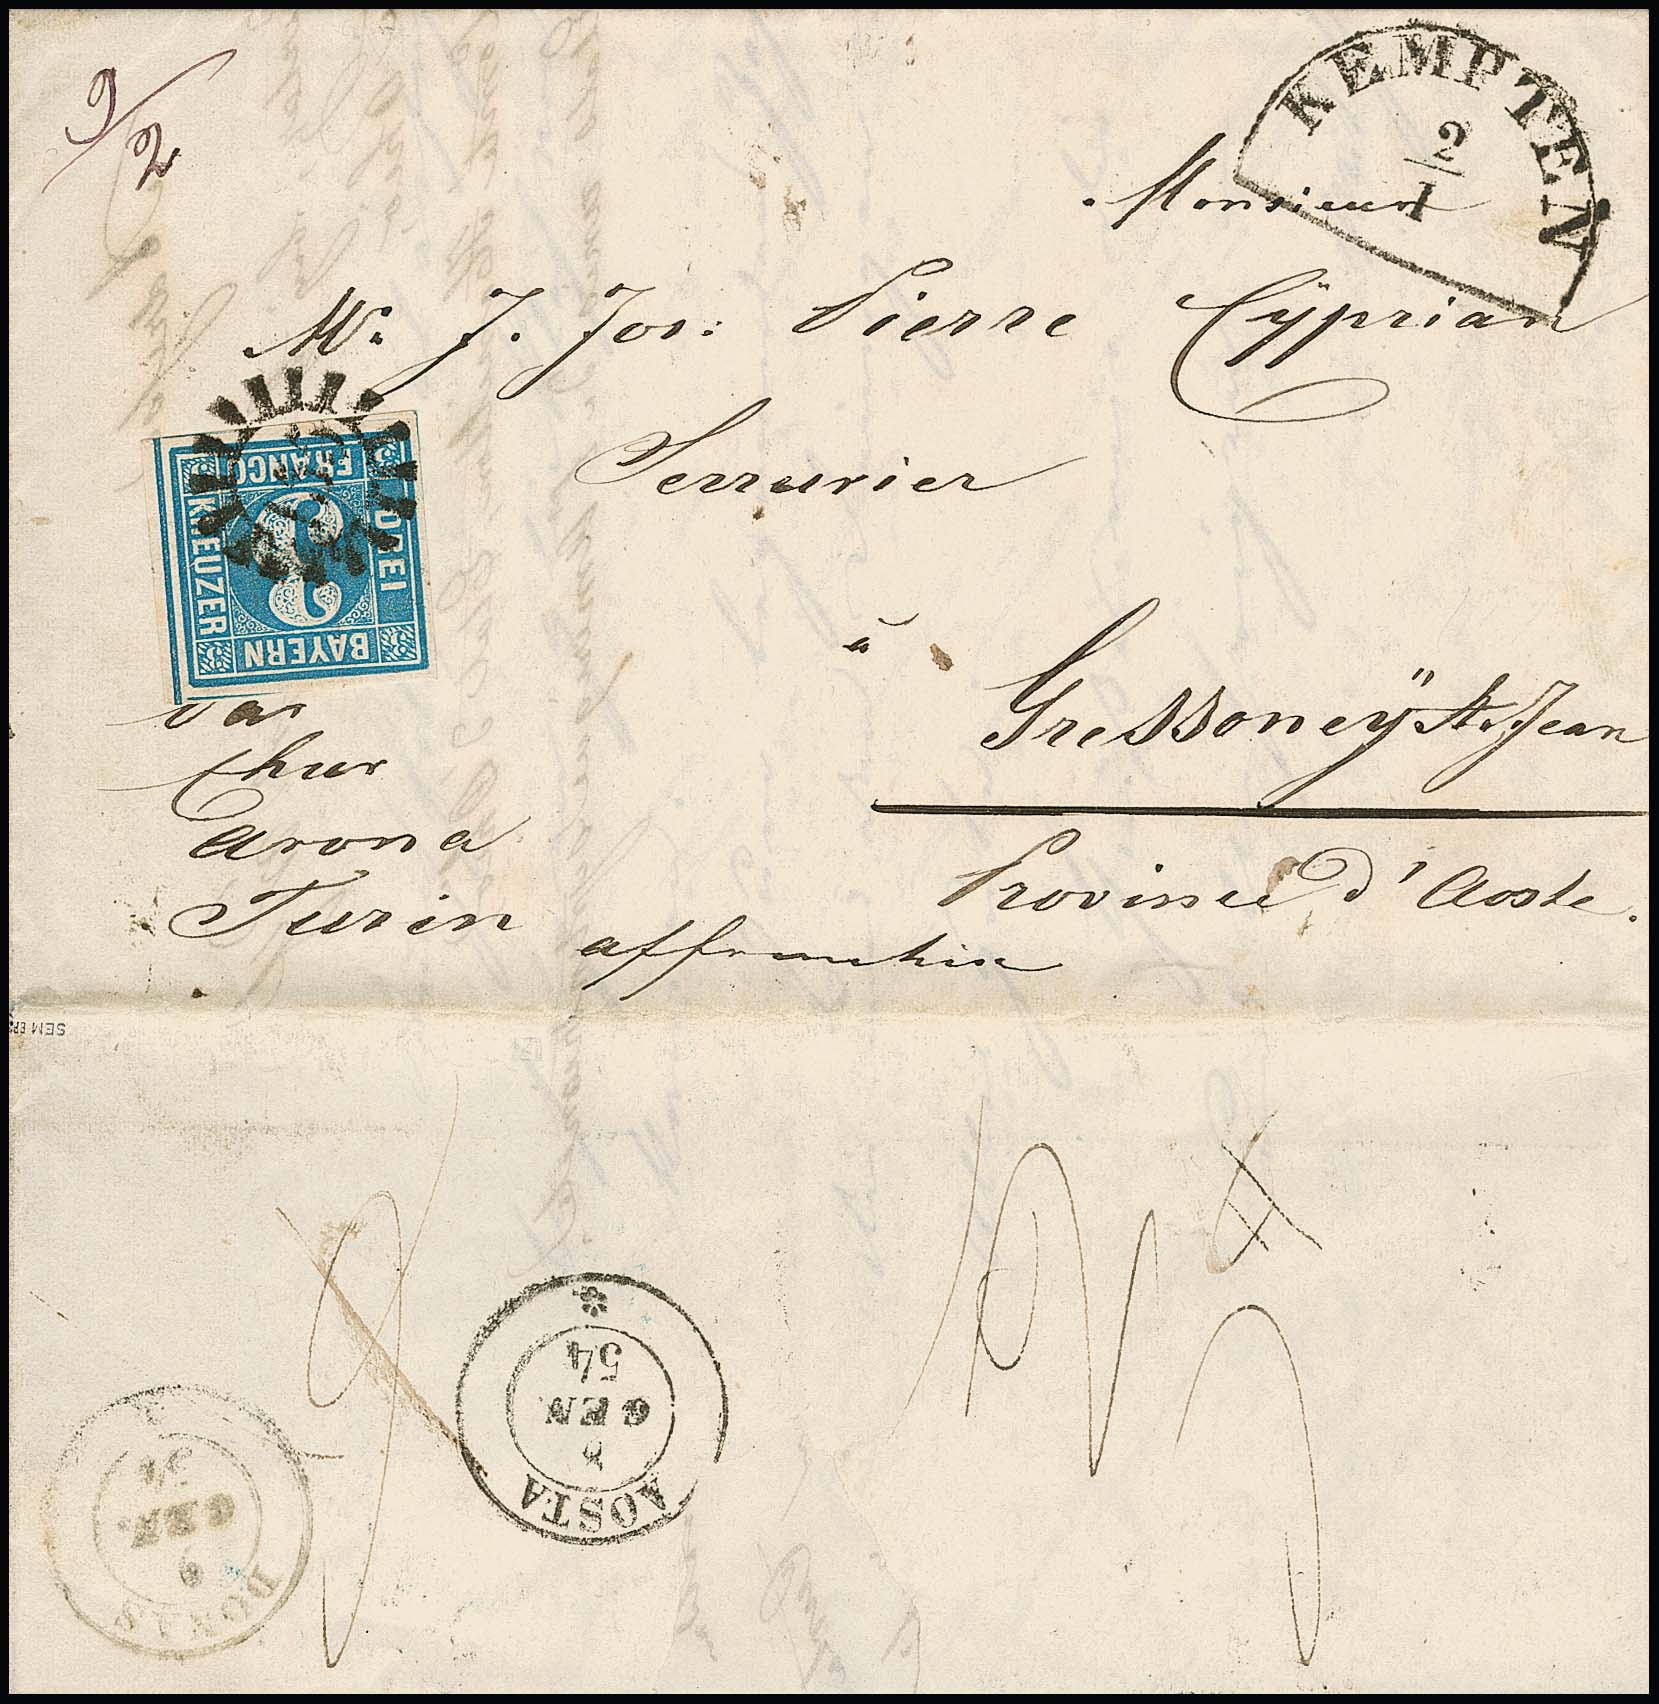 9/2
KEMPTEN
2
1
Monsieur
Mr. J. Jos: Pierre Cÿprian
Serrurier
BAYERN
DREI
KREUZER
FRANCO
3
à
Gressoneÿ St. Jean
Province d'Aoste.
via
Chur
Arona
Turin
affranchie
SEM
AOSTA
8
GEN
54
DONAS
9
GEN.
54